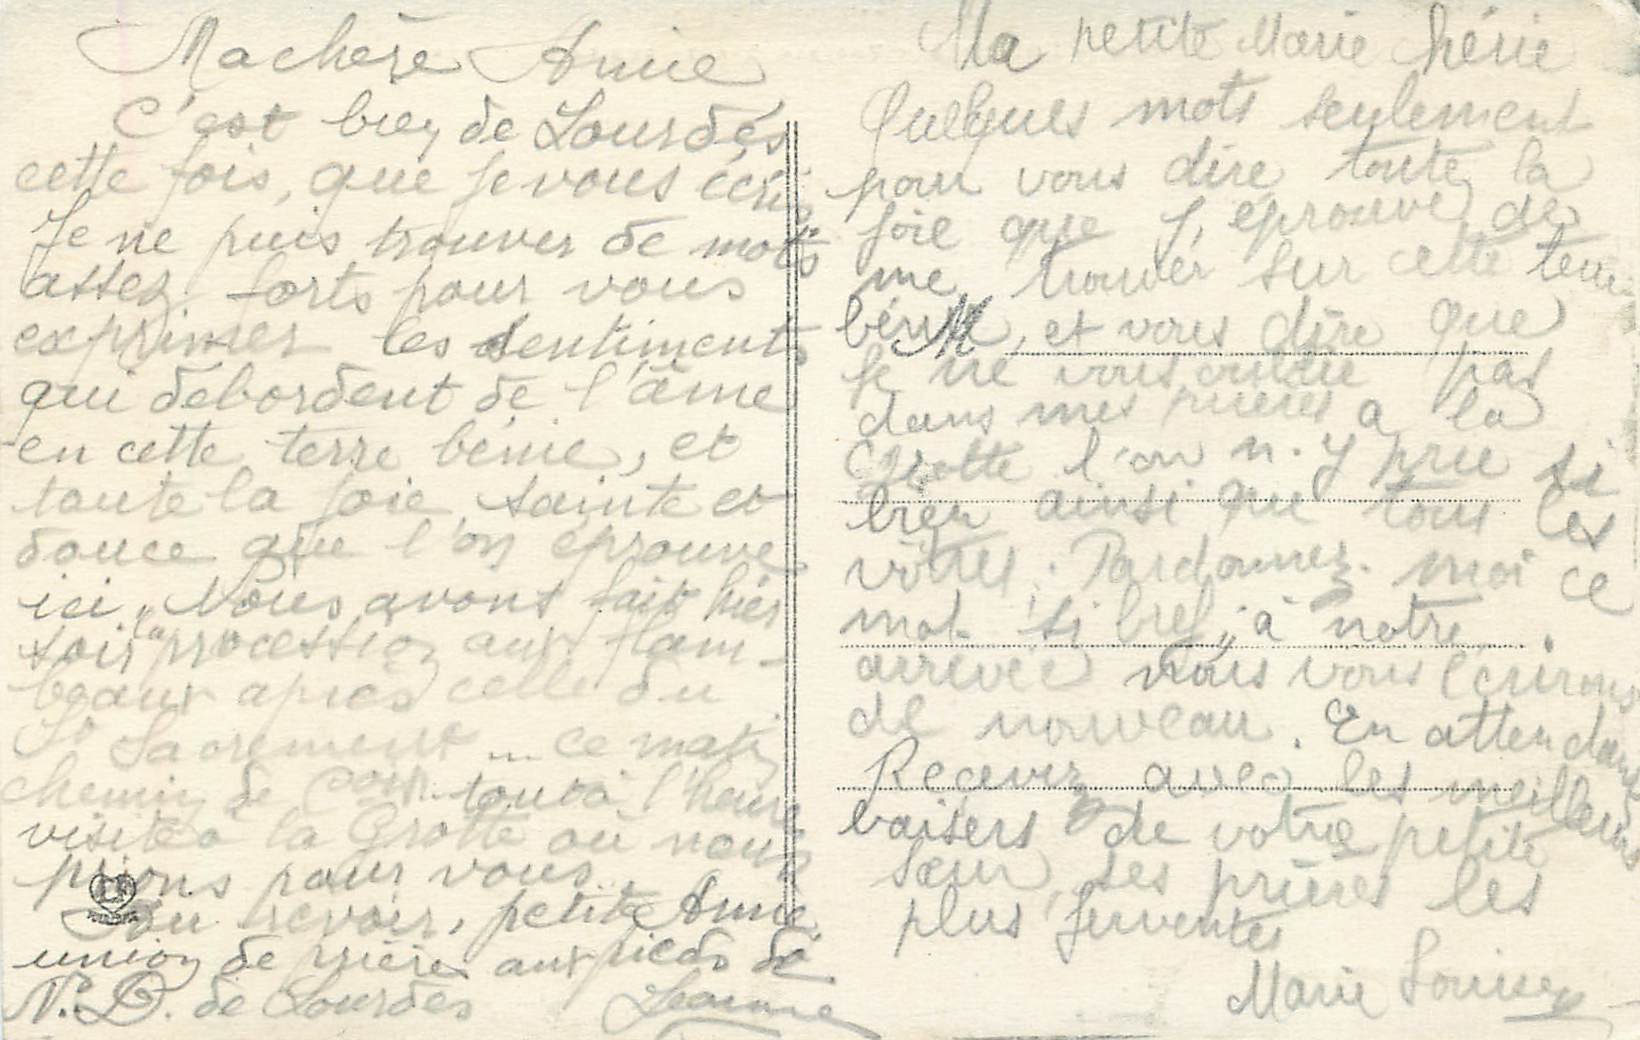 Ma chère Anne
C'est bien de Lourdes
cette fois, que je vous écris
Je ne puis trouver de mots
assez forts pour vous
exprimer les sentiments
qui débordent de l'âme
en cette terre bénie, et
toute la joie sainte et
douce que l'on éprouve
ici. Nous avons fait hier
soir la procession aux flam-
beaux après celle du
St Sacrement ... ce matin
chemin de Croix.. tout à l'heure
visite à la Grotte où nous
prions pour vous.
Au revoir, petite Anne
union de prière aux pieds de
N. D. de Lourdes Jeanne
Ma petite Marie chérie
Quelques mots seulement
pour vous dire toute la
joie que j'éprouve de
me trouver sur cette terre
bénie, et vous dire que
je ne vous oublie pas
dans mes prières a la
Grotte l'on n.y prie si
bien ainsi que tous les
vôtres. Pardonnez-moi ce
mot si bref, à notre
arrivée nous vous écrirons
de nouveau. En attendant
Recevez avec les meilleurs
baisers de votre petite
sœur, ses prières les
plus ferventes
Marie Louise